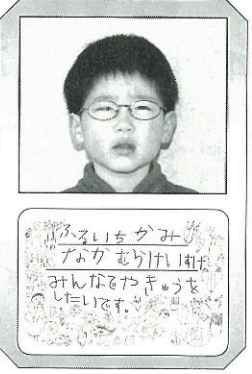 ふるいち かみ
なかむらけいすけ
みんなでやきゅうを
したいです。